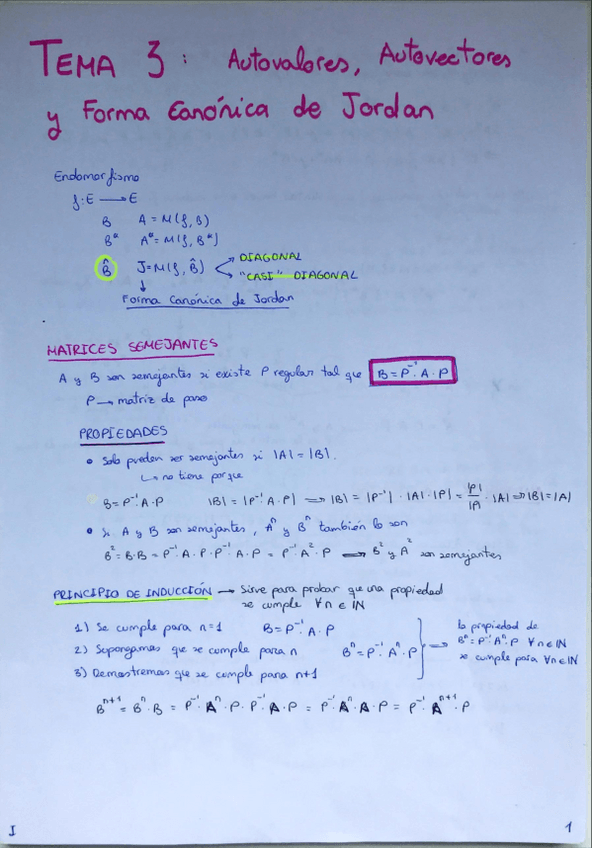 TEMA 3: Autovalores, Autovectores
y Forma Canónica de Jordan
Endomorfismo
f: E → E
B A = M(f, B)
B* A* = M(f, B*)
B̂ J = M(f, B̂) DIAGONAL
"CASI" DIAGONAL
↓
Forma Canónica de Jordan
MATRICES SEMEJANTES
A y B son semejantes si existe P regular tal que B = P⁻¹·A·P
P → matriz de paso
PROPIEDADES
• Solo pueden ser semejantes si |A| = |B|.
↳ no tiene porque
B = P⁻¹·A·P |B| = |P⁻¹·A·P| ⟹ |B| = |P⁻¹|·|A|·|P| = |P|/|P|·|A| ⟹ |B| = |A|
• Si A y B son semejantes, Aⁿ y Bⁿ también lo son
B² = B·B = P⁻¹·A·P·P⁻¹·A·P = P⁻¹·A²·P ⟹ B² y A² son semejantes
PRINCIPIO DE INDUCCIÓN → Sirve para probar que una propiedad
se cumple ∀n ∈ ℕ
1) Se cumple para n=1 B = P⁻¹·A·P
2) Supongamos que se cumple para n Bⁿ = P⁻¹·Aⁿ·P
3) Demostremos que se cumple para n+1
⟹ la propiedad de
Bⁿ = P⁻¹·Aⁿ·P ∀n ∈ ℕ
se cumple para ∀n ∈ ℕ
Bⁿ⁺¹ = Bⁿ·B = P⁻¹·Aⁿ·P·P⁻¹·A·P = P⁻¹·Aⁿ·A·P = P⁻¹·Aⁿ⁺¹·P
I 1